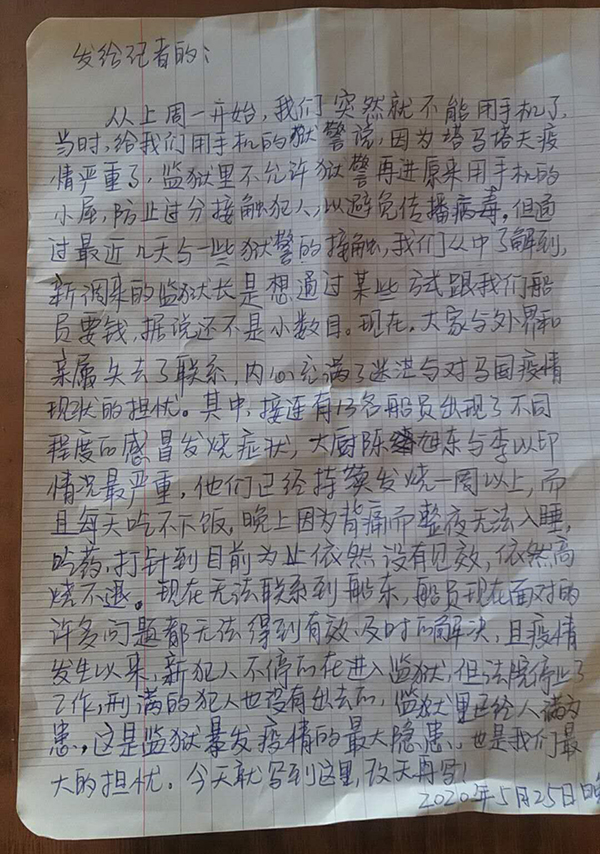 发给记者的：
从上周一开始，我们突然就不能用手机了，
当时，给我们用手机的狱警说，因为塔马塔夫疫
情严重了，监狱里不允许狱警再进原来用手机的
小屋，防止过分接触犯人，以避免传播病毒。但通
过最近几天与一些狱警的接触，我们从中了解到，
新调来的监狱长是想通过某些方式跟我们船
员要钱，据说还不是小数目。现在，大家与外界和
亲属失去了联系，内心充满了迷茫与对马国疫情
现状的担忧。其中，接连有13名船员出现了不同
程度的感冒发烧症状，大厨陈旭东与李以印
情况最严重，他们已经持续发烧一周以上，而
且每天吃不下饭，晚上因为背痛而整夜无法入睡，
吃药，打针到目前为止依然没有见效，依然高
烧不退。现在无法联系到船东，船员现在面对的
许多问题都无法得到有效、及时的解决，且疫情
发生以来，新犯人不停的在进入监狱，但法院停止了
工作，刑满的犯人也没有出去的，监狱里已经人满为
患，这是监狱暴发疫情的最大隐患，也是我们最
大的担忧。今天就写到这里，改天再写！
2020年5月25日晚